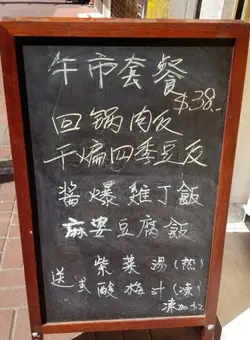 午市套餐
$38.-
回鍋肉反
干煸四季豆反
醬爆雞丁飯
麻婆豆腐飯
紫菜湯(热)
送 式 酸梅汁(凍)
凍加$2